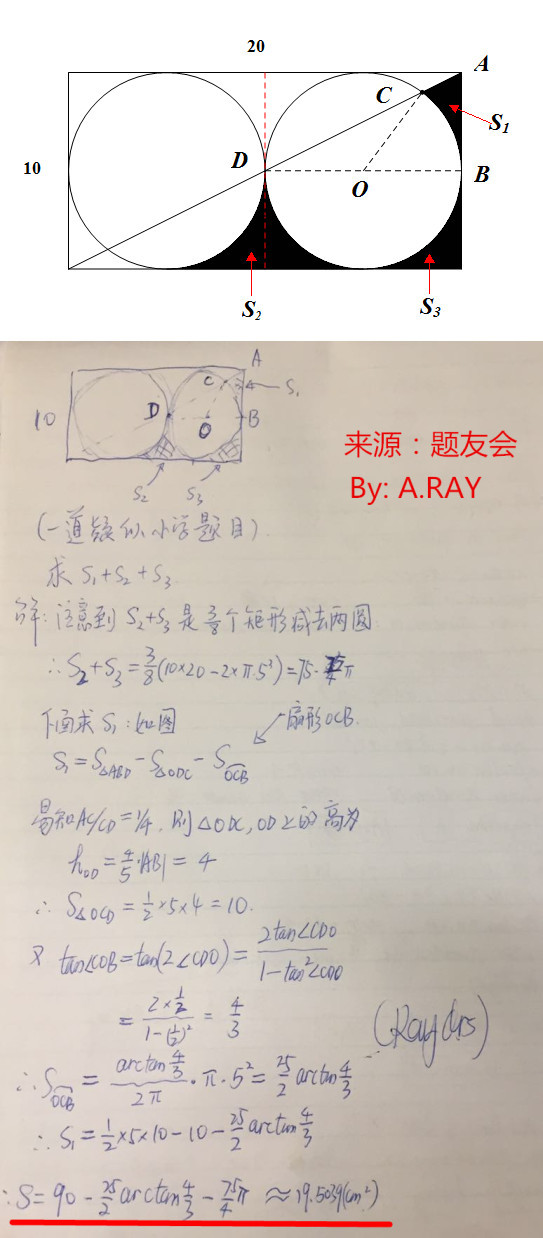 20
A
C
S1
10
D
O
B
S2
S3
A
C
S1
10
D
O
B
S2
S3
来源：题友会
By: A.RAY
(一道疑似小学题目).
求 S1+S2+S3.
解：注意到 S2+S3 是 3/8 个矩形减去两圆.
∴ S2+S3 = 3/8(10×20-2×π·5²) = 75-π
下面求 S1：如图
扇形OCB.
S1 = S△ABD - S△ODC - SOCB
易知 AC/CD = 1/4, 则 △ODC, OD上的高为
hOD = 4/5·|AB| = 4
∴ S△OCD = 1/2×5×4 = 10.
又 tan∠COB = tan(2∠CDO) = 2tan∠CDO / 1-tan²∠CDO
= 2×1/2 / 1-(1/2)² = 4/3
(Ray Ars)
∴ SOCB = arctan 4/3 / 2π · π·5² = 25/2 arctan 4/3
∴ S1 = 1/2×5×10-10-25/2 arctan 4/3
∴ S = 90 - 25/2 arctan 4/3 - 75/4 π ≈ 19.5039(cm²)